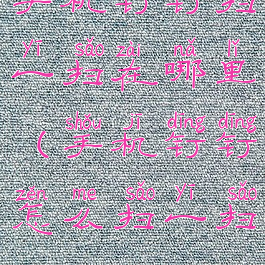 手机钉钉扫
yī sǎo zài nǎ lǐ
一扫在哪里
shǒu jī dīng dīng
（手机钉钉
zěn me sǎo yī sǎo
怎么扫一扫